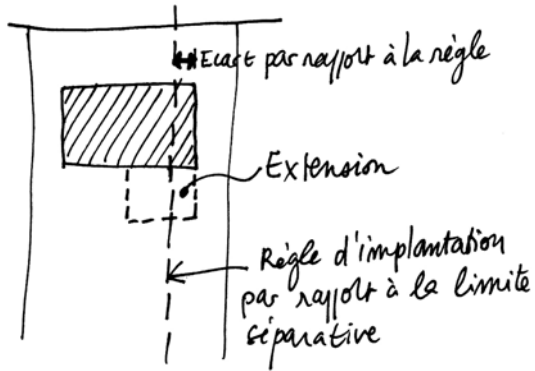 Ecart par rapport à la règle
Extension
Règle d'implantation
par rapport à la limite
séparative